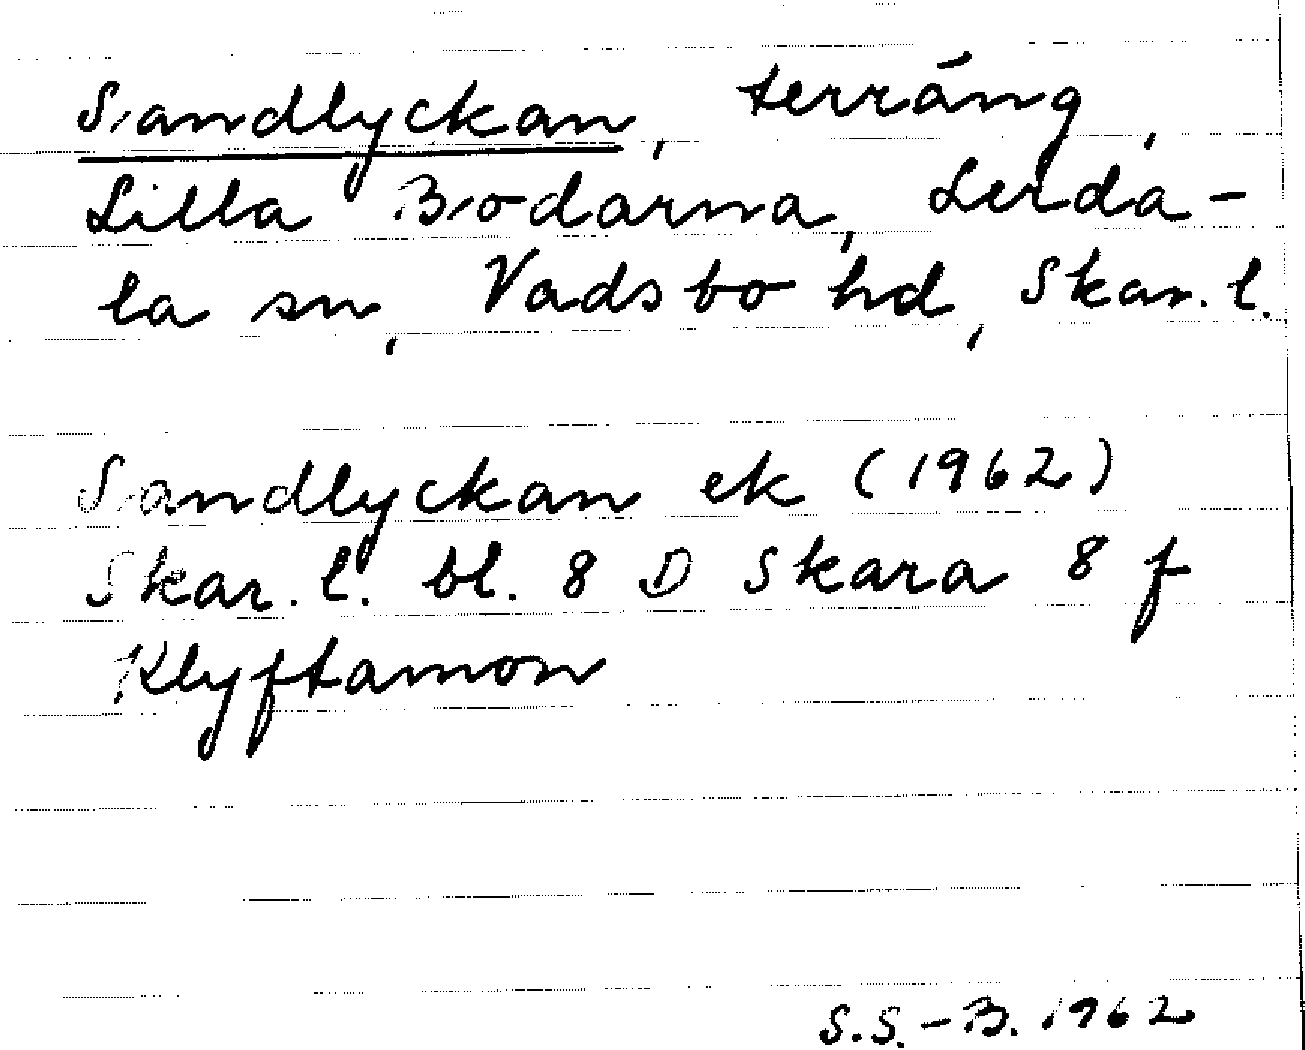 Sandlyckan, terräng,
Lilla Bodarna, Lerda-
la sn, Vadsbo hd, Skar. l.
Sandlyckan ek (1962)
Skar. l. bl. 8 D Skara 8 f
Klyftamon
S.S.-B. 1962